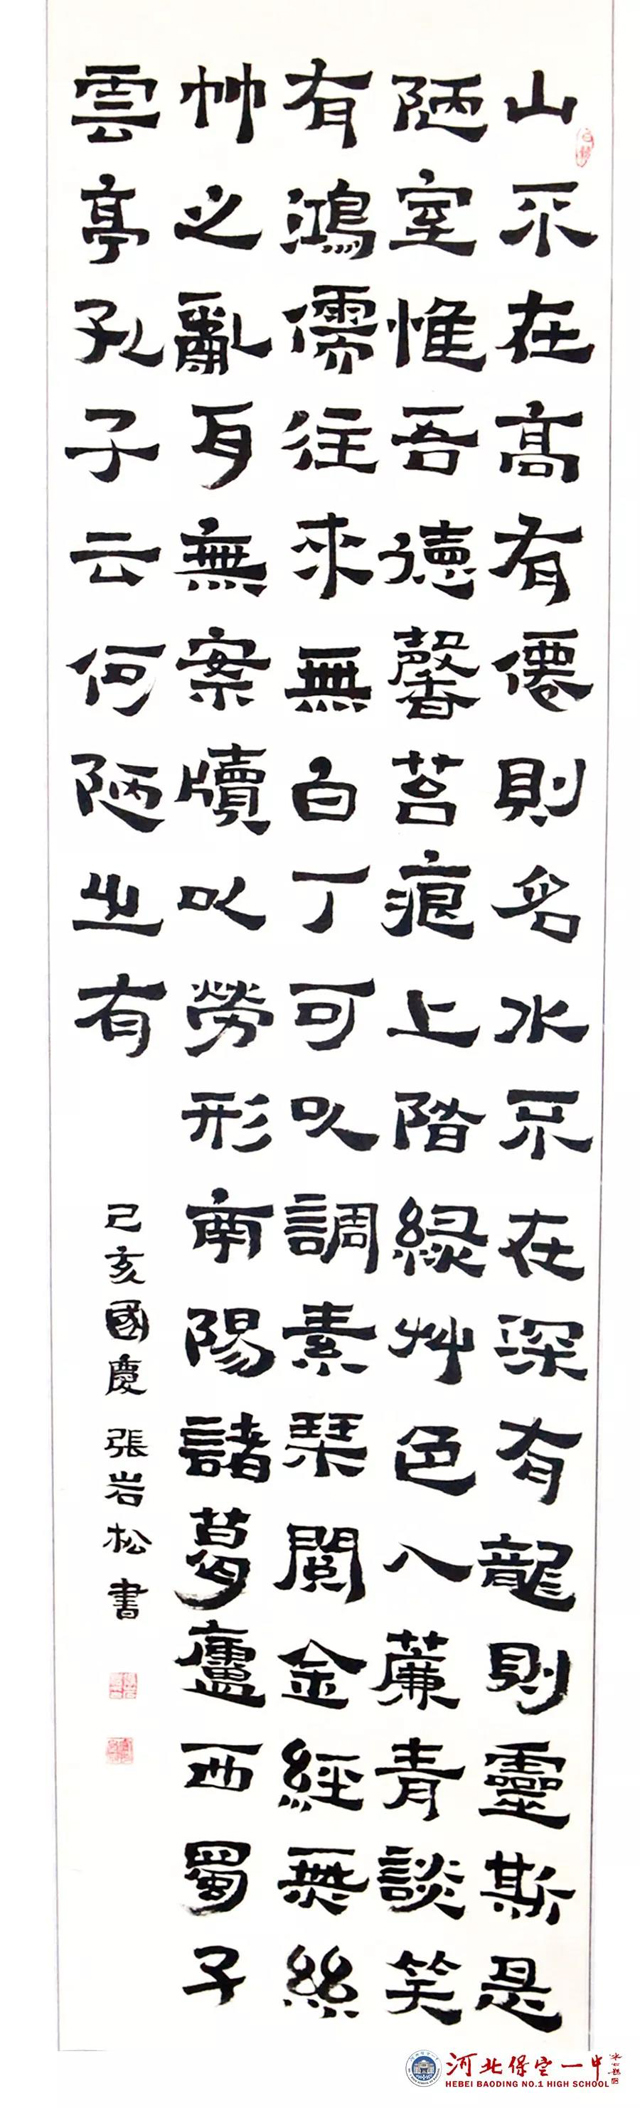 山不在高有僊則名水不在深有龍則靈斯是
陋室惟吾德馨苔痕上階緑艸色入簾青談笑
有鴻儒往來無白丁可以調素琹閱金經無絲
竹之亂耳無案牘以勞形南陽諸葛廬西蜀子
雲亭孔子云何陋之有
己亥國慶張岩松書
河北保定一中
HEBEI BAODING NO.1 HIGH SCHOOL